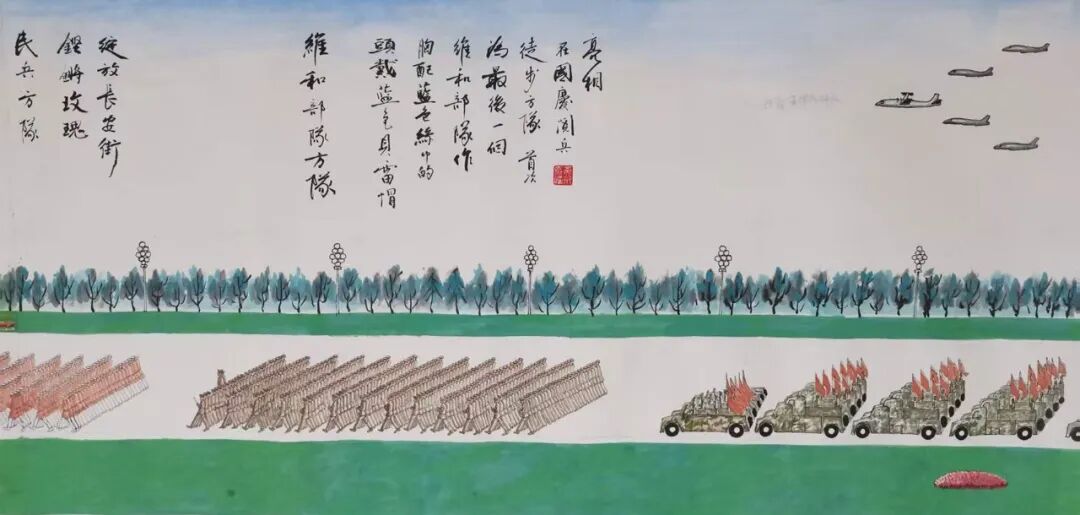 民兵方隊
鏗鏘玫瑰
綻放長安街
維和部隊方隊
頭戴藍色貝雷帽
胸配藍色絲巾的
維和部隊作
為最後一個
徒步方隊 首次
在國慶閲兵
亮相